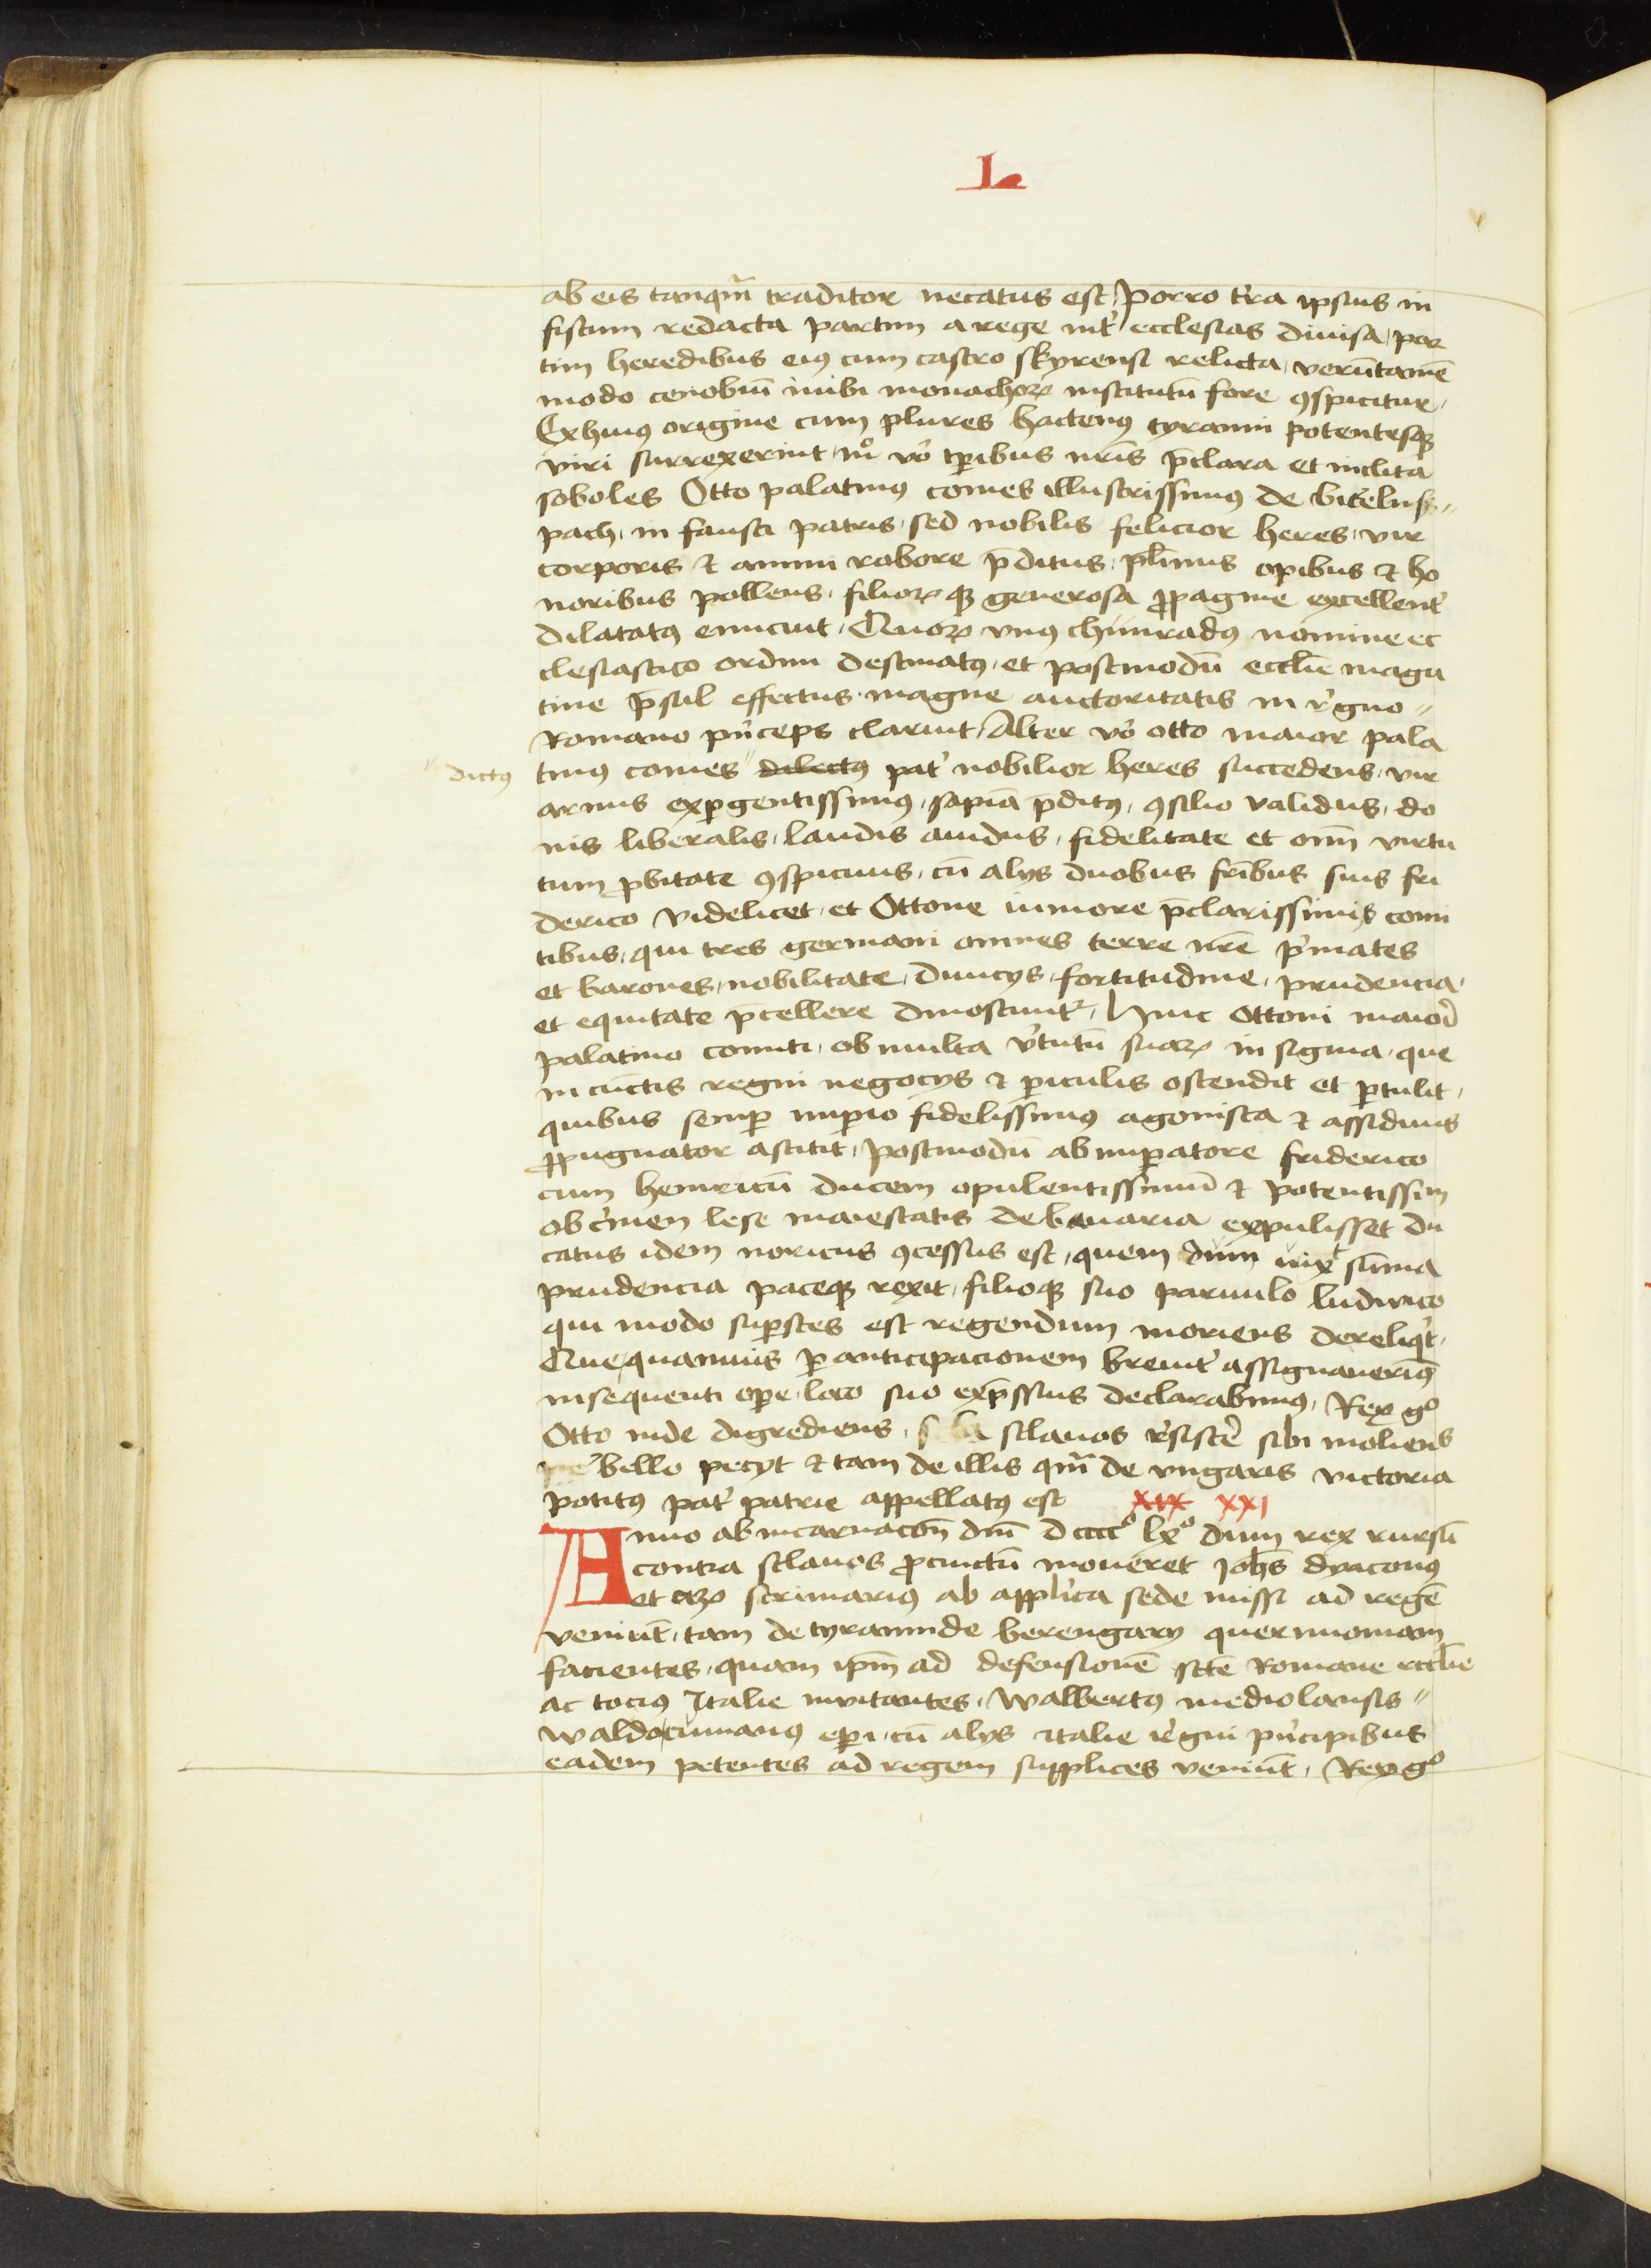 L
ab eis tanqm̄ traditor necatus est, Porro t͛ra ipsius in
fiscum redacta partim a rege int͛ ecclesias diuisa, par
tim heredibus eiꝰ cum castro skyrensi relicta, verūtamē
modo cenobiū inibi monachoꝝ institutū fore ꝯspicitur,
Ex huiꝰ origine cum plures hactenꝰ tyranni potentesqꝫ
viri surrexerint, mͦ vͦo tꝑibus nr̄is p̄clara et inclita
soboles Otto palatinꝰ comes illustrissimꝰ de bitelins〃
pach, in fausti patris, sed nobilis felicior heres, vir
corporis ⁊ animi robore p̄ditus, pl̄imis opibus ⁊ ho
noribus pollens, filioꝝ qꝫ generosa ꝓpagine excellent͛
dilatatꝰ enucuit, Quoꝝ vnꝰ chunradꝰ nomine ec
clesiastico ordini destinatꝰ, et postmodū eccl̄ie magu
tine p̄sul effectus, magne auctoritatis in r͛gno〃
Romano pͥnceps claruit, Alter vͦo otto maior pala
tinꝰ comes 〃 dilectꝰ pat͛ nobilior heres succedens, vir
〃 dictꝰ
armis exꝑgentissimꝰ, sapīa p̄ditꝰ, ꝯsilio validus, do
nis liberalis, laudis auidus, fidelitate et om̄ virtu
tum ꝓbitate ꝯspicuus, cū alijs duobus fr̄ibus suis fri
derico videlicet, et Ottone iuniore p̄clarissimis comi
tibus, qui tres germani omnes terre nr̄e pͥmates
et barones, nobilitate, diuicijs, fortitudine, prudencia,
et equitate p̄cellere dinoscunt᷑, Huic Ottoni maiori
palatino comiti, ob multa v͛tutū suaꝝ in signia, que
in cūctis regni negocijs ⁊ ꝑiculis ostendit et ꝑtulit,
quibus semꝑ imꝑio fidelissimꝰ agonista ⁊ assiduus
ꝓpugnator astitit, postmodū ab imꝑatore friderico
cum heinricū ducem opulentissimū ⁊ potentissim
ob cͥmen lese maiestatis de bauaria expulisset du
catus idem noricus ꝯcessus est, quem dum uixͭ sūma
prudencia paceqꝫ rexit, filioqꝫ suo paruulo ludwico
qui modo suꝑstes est regendum moriens dereliqͥt,
Que quamuis ꝑ anticipacionem breuit͛ assignauerimꝰ
in sequenti oꝑe, loco suo exp̄ssius declarabimꝰ, Rex gͦ
Otto inde digrediens, sclauos r͛sistē͛ sibi moliens
bello pecijt ⁊ tam de illis qm̄ de vngaris victoria
potitꝰ pat͛ patrie appellatꝰ est XIX XXI
Anno ab incarnacōn dm̄ dccccͦ lxͦ dum rex rursū
contra sclauos ꝓcinctū moueret Joh̄s dyaconꝰ
et azo scriniariꝰ ab app̄lica sede missi ad regē
veniūt, tam de tyrannide berengarij querimoniam
facientes, quam ip̄m ad defensionē sc̄te Romane eccl̄ie
ac tociꝰ Italie inuitantes, walbertꝰ mediolansis〃
waldo cumanꝰ eꝑi, cū alijs italie r͛gni pͥncipibus
eadem petentes ad regem supplices veniūt, Rex gͦ